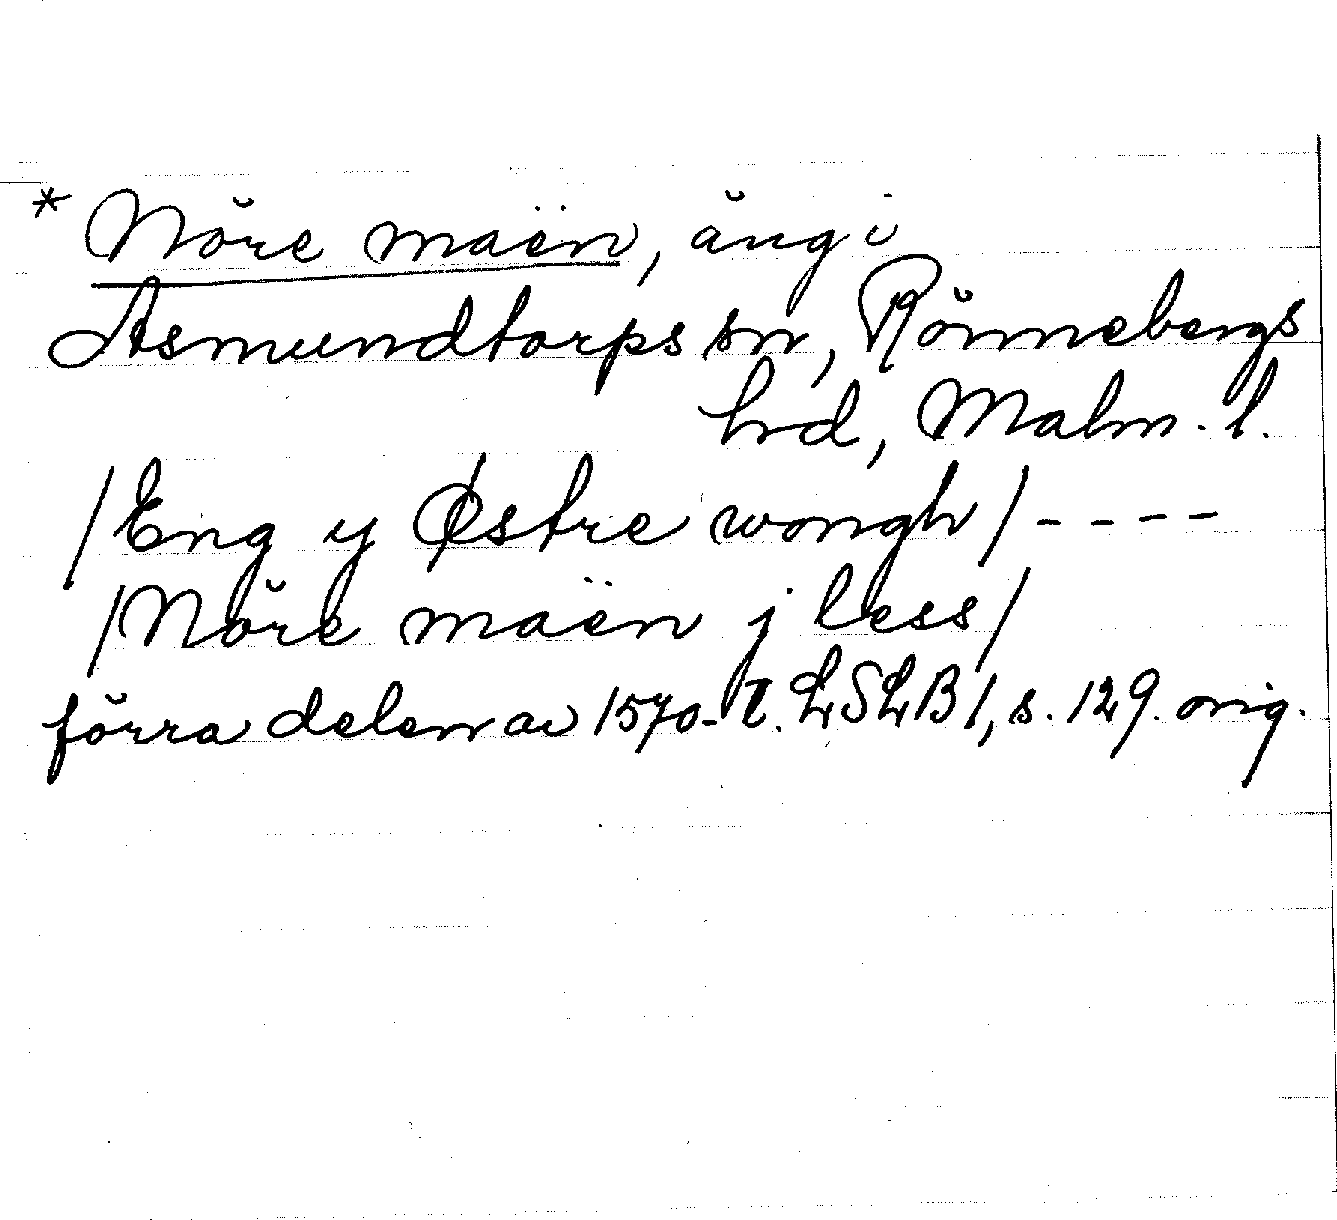 * Nöre maën, äng i
Asmundtorps sn, Rönnebergs
hrd, Malm. l.
/Eng y Østre wongh/----
/Nöre maën j less/
förra delen av 1570-t. LSLB 1, s. 129. orig.